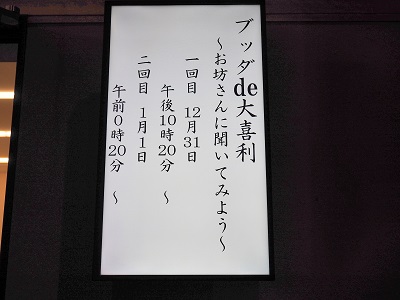 ブッダde大喜利
〜お坊さんに聞いてみよう〜
一回目 12月31日
午後10時20分 〜
二回目 1月1日
午前0時20分 〜